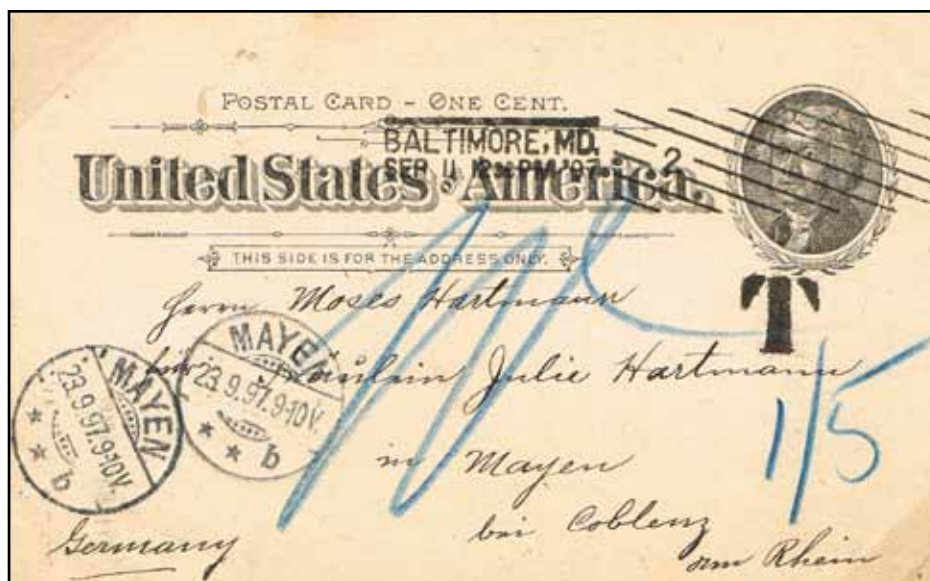 POSTAL CARD - ONE CENT.
BALTIMORE, MD.
SEP 11 12 PM '97
2
United States of America.
THIS SIDE IS FOR THE ADDRESS ONLY.
T
Herrn Moses Hartmann
für Fräulein Julie Hartmann
in Mayen
bei Coblenz
am Rhein
Germany
MAYEN
23.9.97.9-10V.
* * b
MAYEN
23.9.97.9-10V.
* * b
1/5